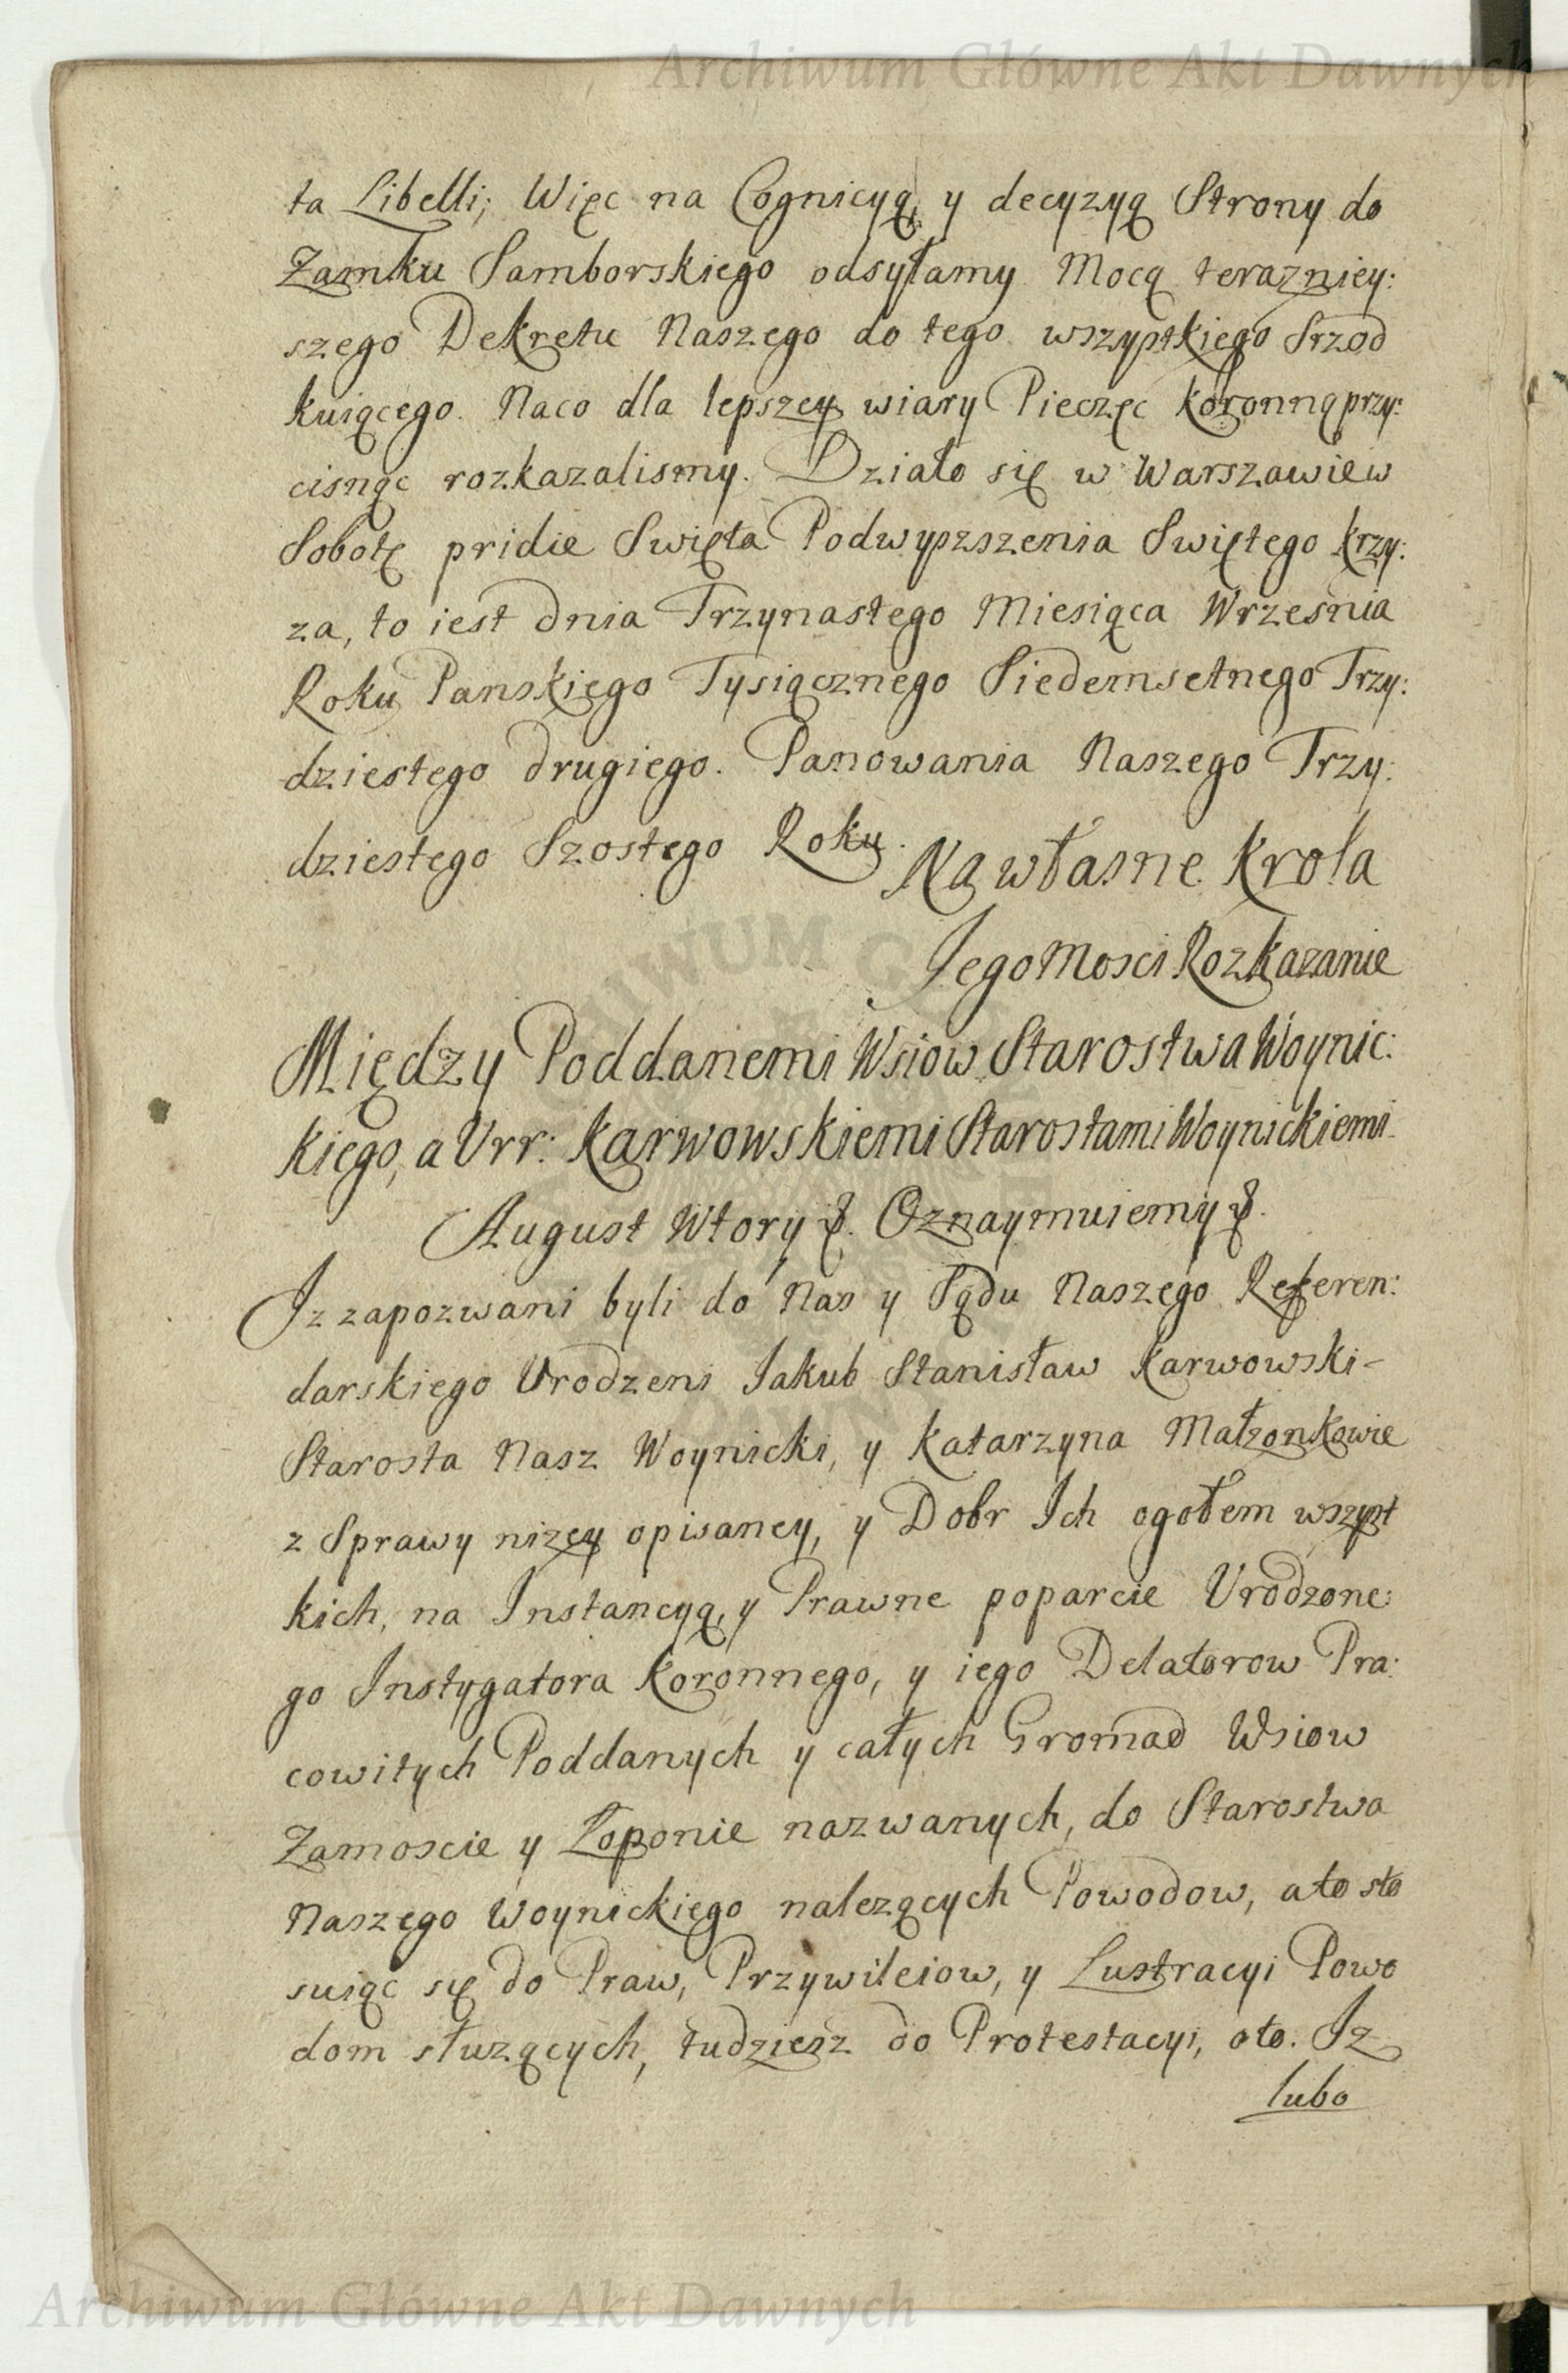 Archiwum Główne Akt Dawnych
ta Libelli; Więc na Cognicyą y decyzyą Strony do
Zamku Samborskiego odsyłamy Mocą terazniey:
szego Dekretu Naszego do tego wszystkiego Srzod
kuiącego. Naco dla lepszey wiary Pieczęc koronną przy:
cisnąc rozkazalismy. Działo się w Warszawie w
Sobotę pridie Swięta Podwyszszenia Swiętego krzy:
za, to iest dnia Trzynastego Miesiąca Wrzesnia
Roku Panskiego Tysiącznego Siedemsetnego Trzy:
dziestego drugiego. Panowania Naszego Trzy:
dziestego Szostego Roku. Na własne Krola
Jego Mosci Rozkazanie
Między Poddanemi Wsiow Starostwa Woynic:
kiego, a Urr: Karwowskiemi Starostami Woynickiemi.
August Wtory &. Oznaymuiemy &.
Iz zapozwani byli do Nas y Sądu Naszego Referen:
darskiego Urodzeni Jakub Stanisław Karwowski-
Starosta Nasz Woynicki, y Katarzyna Małzonkowie
z Sprawy nizey opisaney, y Dobr Ich ogołem wszyst
kich, na Instancyą, y Prawne poparcie Urodzone:
go Instygatora Koronnego, y iego Delatorow Pra:
cowitych Poddanych y całych Gromad Wsiow
Zamoscie y Łoponie nazwanych, do Starostwa
Naszego Woynickiego nalezących Powodow, a to sto
suiąc się do Praw, Przywileiow, y Lustracyi Powo
dom słuzących, tudziesz do Protestacyi, oto. Iz
lubo
Archiwum Główne Akt Dawnych